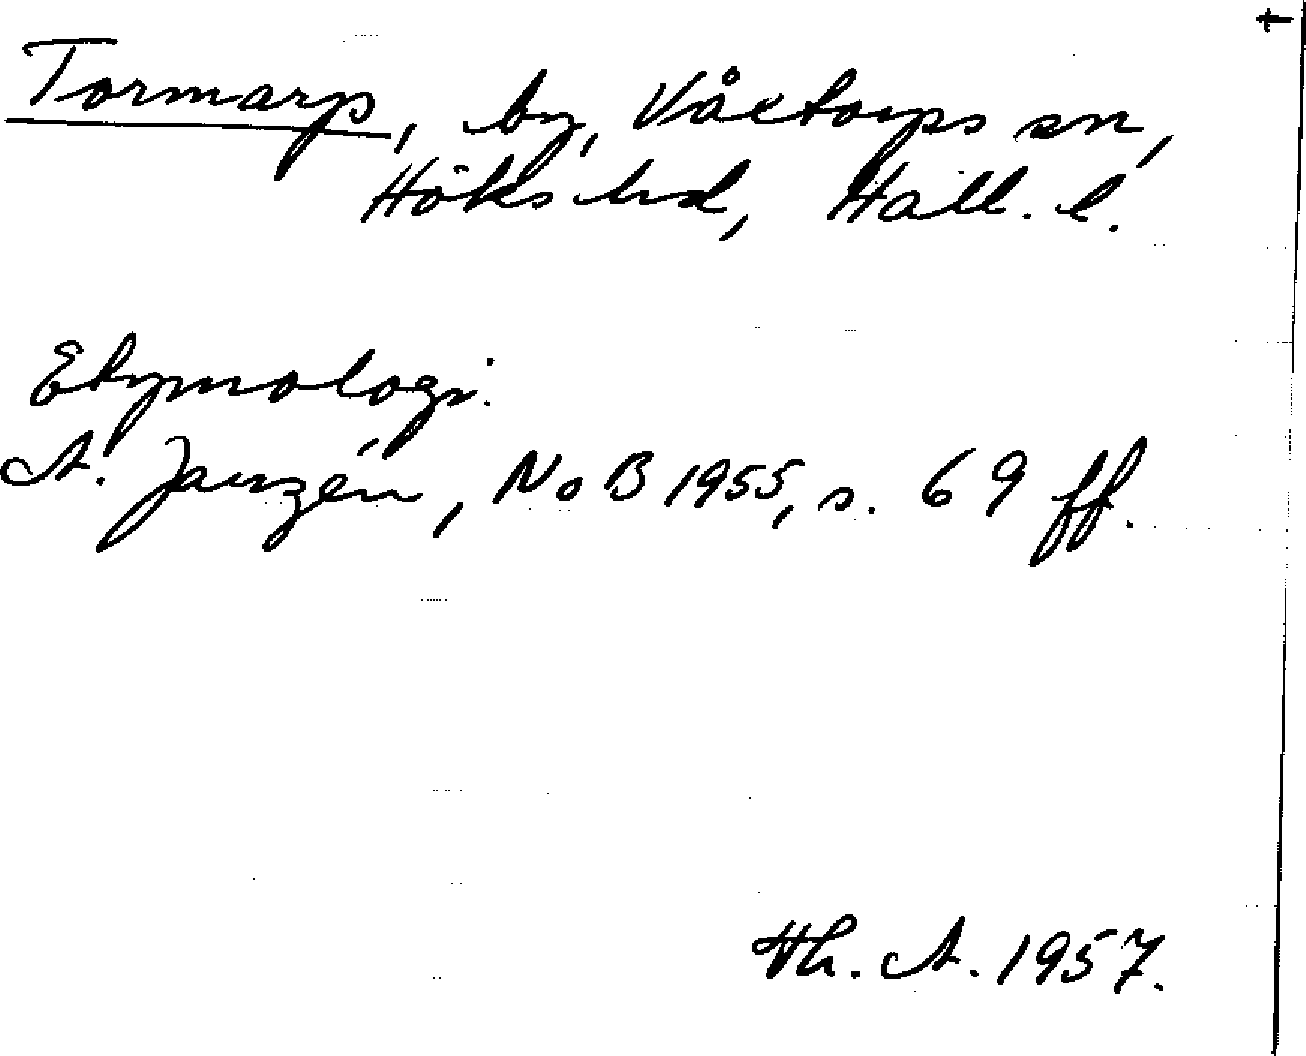 Tormarp, by, Våxtorps sn,
Höks hd, Hall. l.
Etymologi.
A. Janzén, NoB 1955, s. 69 ff.
Th. A. 1957.